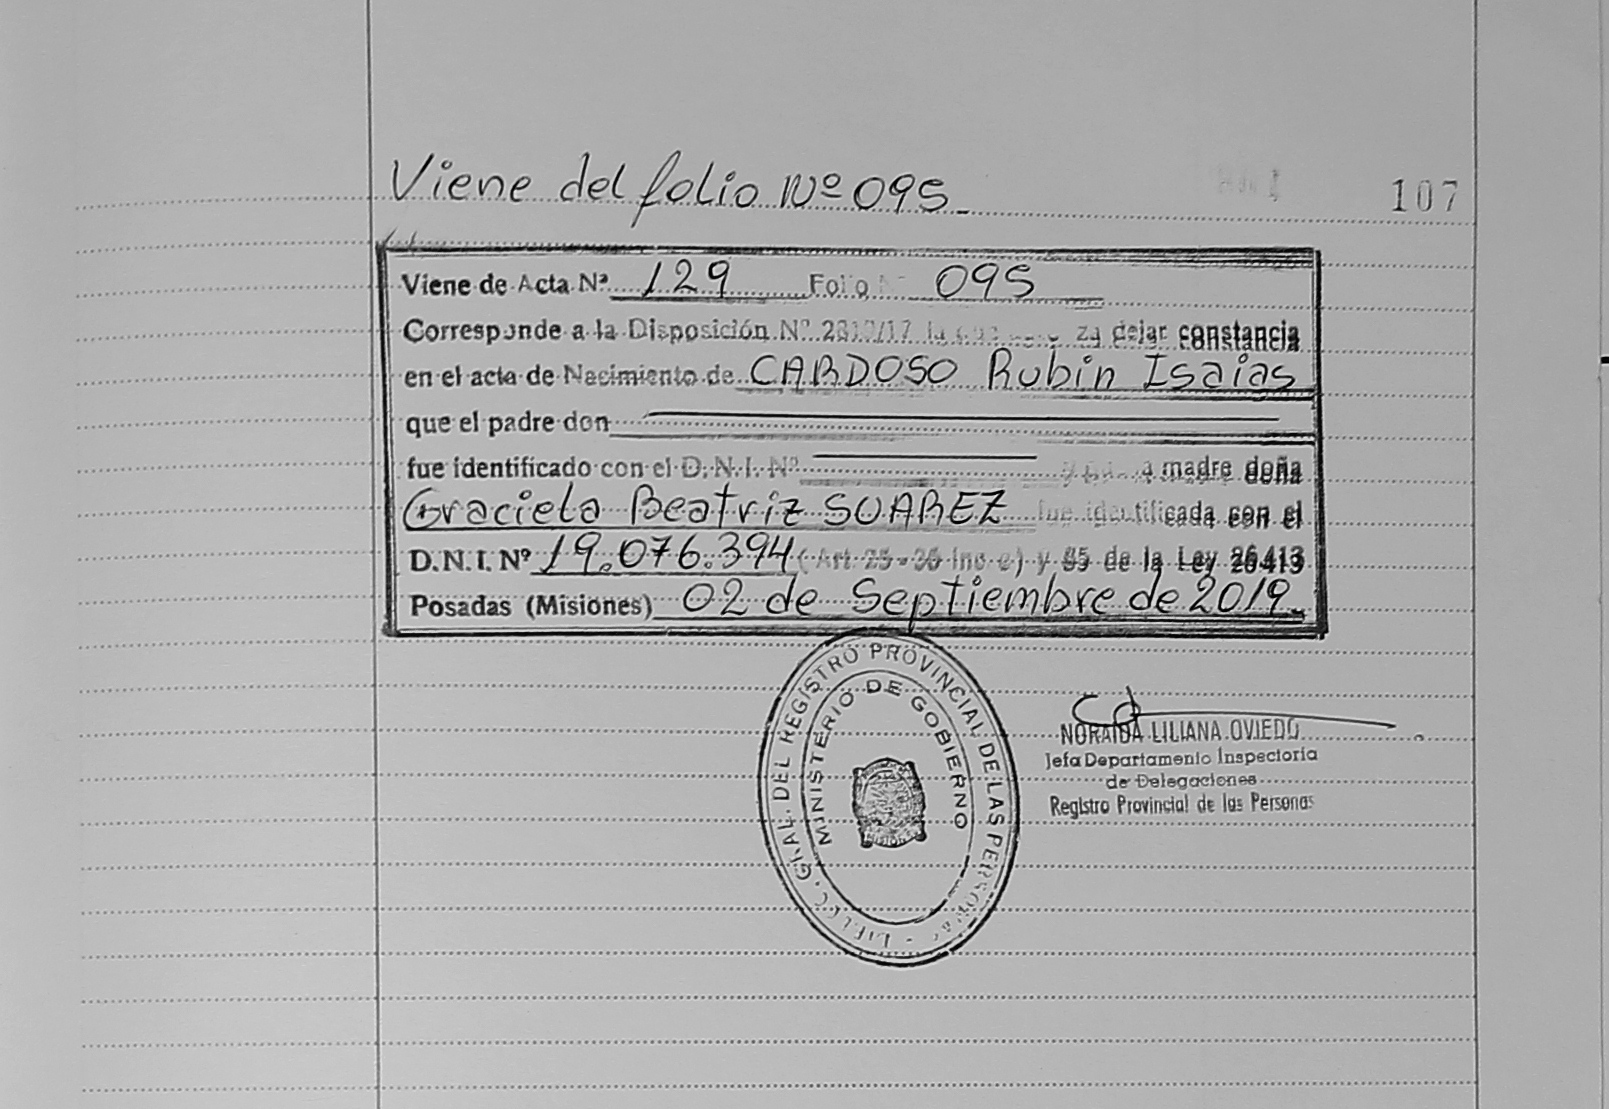 Viene del folio Nº 095_
107
Viene de Acta Nº 129 Folio Nº 095
Corresponde a la Disposición Nº 2812/17 dejar constancia
en el acta de Nacimiento de CARDOSO Rubin Isaias
que el padre don
fue identificado con el D.N.I. Nº madre doña
Graciela Beatriz SUAREZ fue identificada con el
D.N.I. Nº 19.076.394 (Art. 25 - 36 inc e) y 85 de la Ley 26413
Posadas (Misiones) 02 de Septiembre de 2019.
GRAL. DEL REGISTRO PROVINCIAL DE LAS PERSONAS
MINISTERIO DE GOBIERNO
NORAIDA LILIANA OVIEDO
Jefa Departamento Inspectoria
de Delegaciones
Registro Provincial de las Personas